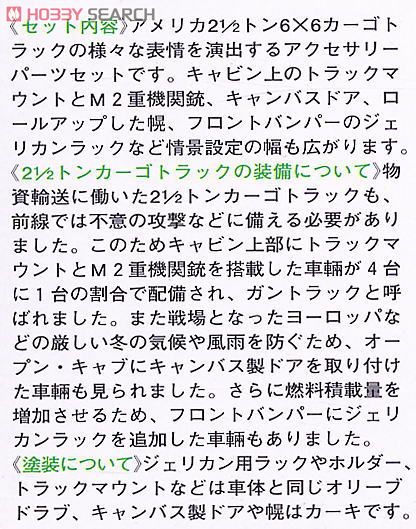 HOBBY SEARCH
《セット内容》アメリカ2½トン6×6カーゴト
ラックの様々な表情を演出するアクセサリー
パーツセットです。キャビン上のトラックマ
ウントとM2重機関銃、キャンバスドア、ロ
ールアップした幌、フロントバンパーのジェ
リカンラックなど情景設定の幅も広がります。
《2½トンカーゴトラックの装備について》物
資輸送に働いた2½トンカーゴトラックも、
前線では不意の攻撃などに備える必要があり
ました。このためキャビン上部にトラックマ
ウントとM2重機関銃を搭載した車輛が4台
に1台の割合で配備され、ガントラックと呼
ばれました。また戦場となったヨーロッパな
どの厳しい冬の気候や風雨を防ぐため、オー
プン・キャブにキャンバス製ドアを取り付け
た車輛も見られました。さらに燃料積載量を
増加させるため、フロントバンパーにジェリ
カンラックを追加した車輛もありました。
《塗装について》ジェリカン用ラックやホルダー、
トラックマウントなどは車体と同じオリーブ
ドラブ、キャンバス製ドアや幌はカーキです。